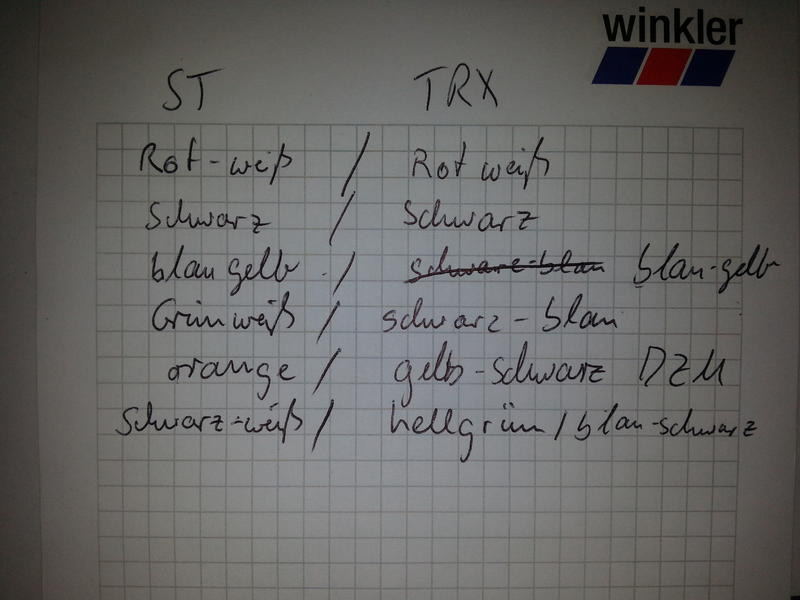 winkler
ST TRX
Rot-weiß / Rot weiß
Schwarz / Schwarz
blau gelb / schwarz-blau blau-gelb
Grünweiß / schwarz-blau
orange / gelb-schwarz DZM
Schwarz-weiß / hellgrün / blau-schwarz